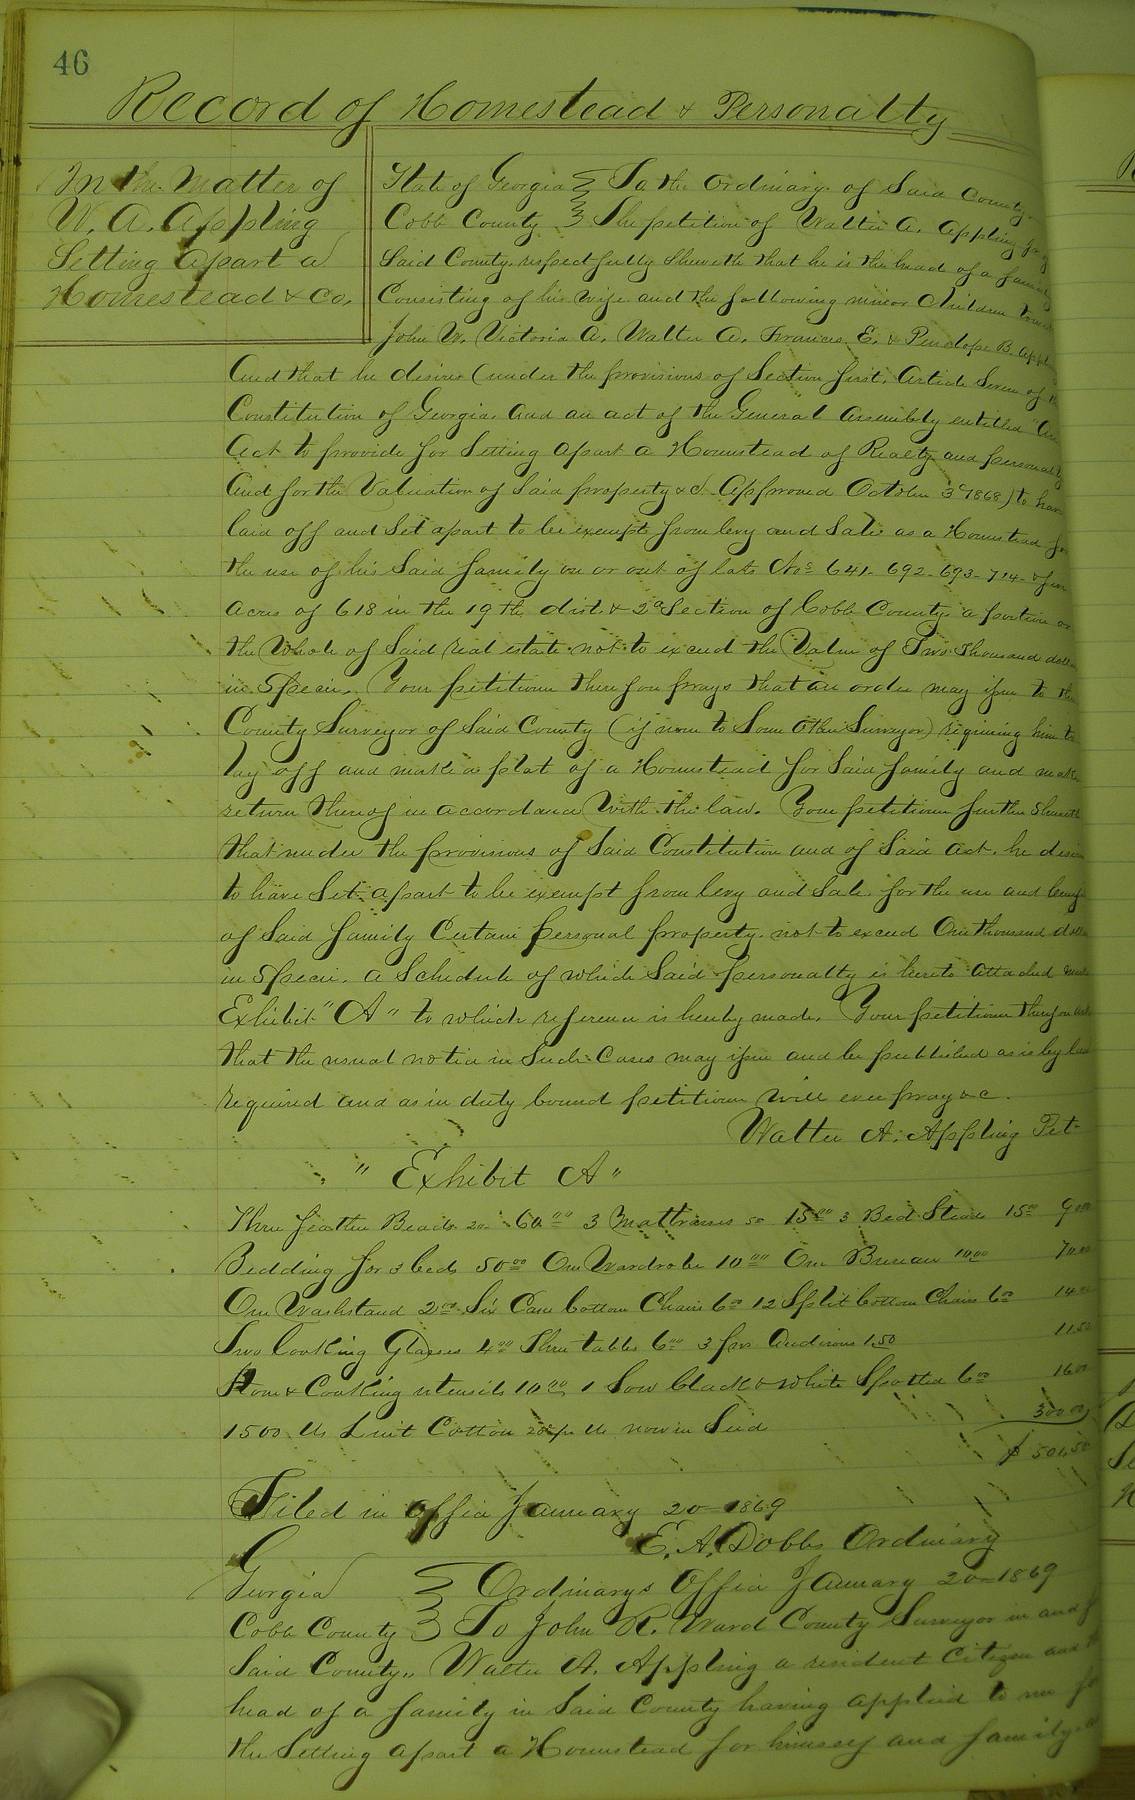 46
Record of Homestead & Personalty
In the Matter of
W. A. Appling
Setting Apart a
Homestead & Co.
State of Georgia } To the Ordinary of Said County.
Cobb County } The petition of Walter A. Appling
Said County respectfully sheweth that he is the head of a family
Consisting of his wife and the following minor Children
John W. Victoria A. Walter A. Frances E. & Penelope B. Appl
And that he desires (under the provisions of Section first, Article Seven of
Constitution of Georgia, and an act of the General Assembly entitled "An
Act to provide for Setting Apart a Homestead of Realty and personalty
And for the Valuation of Said property &c Approved October 3d 1868) to have
laid off and Set apart to be exempt from levy and Sale as a Homestead for
the use of his Said family on or out of lots Nos 641- 692- 693- 714-
Acres of 618 in the 19th dist. & 2d Section of Cobb County. a portion or
the Whole of Said real estate not to exceed the Value of Two Thousand dolla
in Specie. Your petitioner therefore prays that an order may issue to the
County Surveyor of Said County (if none to Some Other Surveyor) requiring him to
lay off and make a plat of a Homestead for Said family and make
return thereof in accordance With the law. Your petitioner further Sheweth
that under the provisions of Said Constitution and of Said Act. he desires
to have Set apart to be exempt from levy and Sale for the use and benefit
of Said family Certain personal property. not to exceed One thousand dolla
in Specie. a Schedule of which Said personalty is hereto attached
Exhibit "A" to which reference is hereby made. Your petitioner therefore asks
that the usual notice in Such Cases may issue and be published as is by law
required and as in duty bound petitioner will ever pray &c.
Walter A. Appling Pet
" Exhibit A "
Three feather Beads 20- 60 00 3 Mattrasses 50 15 00 3 Bed Steads 15 00 90 00
Bedding for 3 beds 50 00 One Wardrobe 10 00 One Bureau 10 00 70 00
One Washstand 2 00 Six Cane bottom Chairs 6 00 12 Split bottom Chairs 6 00 14 00
Two looking Glasses 4 00 Three tables 6 00 3 prs Andirons 1.50 11.50
Stove & Cooking utensils 10 00 1 Sow black & White Spotted 6 00 16 00
1500 lbs Lint Cotton 20c pr lb now in Seid 300 00
$ 501.50
Filed in office January 20- 1869
E. A. Dobbs Ordinary
Georgia } Ordinarys Office January 20- 1869
Cobb County } To John R. Ward County Surveyor in and f
Said County,, Walter A. Appling a resident Citizen and
head of a family in Said County having applied to me fo
the Setting apart a Homestead for himself and family.